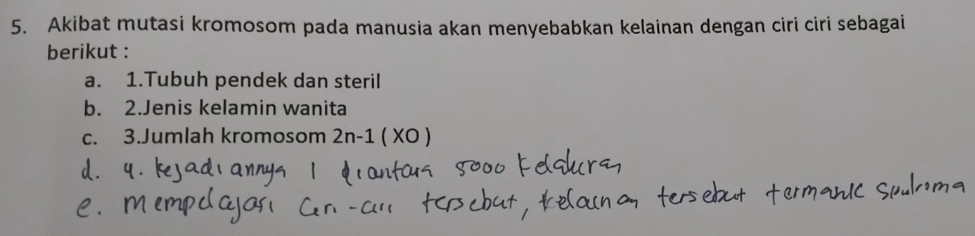 5. Akibat mutasi kromosom pada manusia akan menyebabkan kelainan dengan ciri ciri sebagai
berikut :
a. 1.Tubuh pendek dan steril
b. 2.Jenis kelamin wanita
c. 3.Jumlah kromosom 2n-1 ( XO )
d. 4. kejadiannya 1 diantara 5000 kelahiran
e. mempelajari ciri-ciri tersebut, kelainan tersebut termasuk sindroma